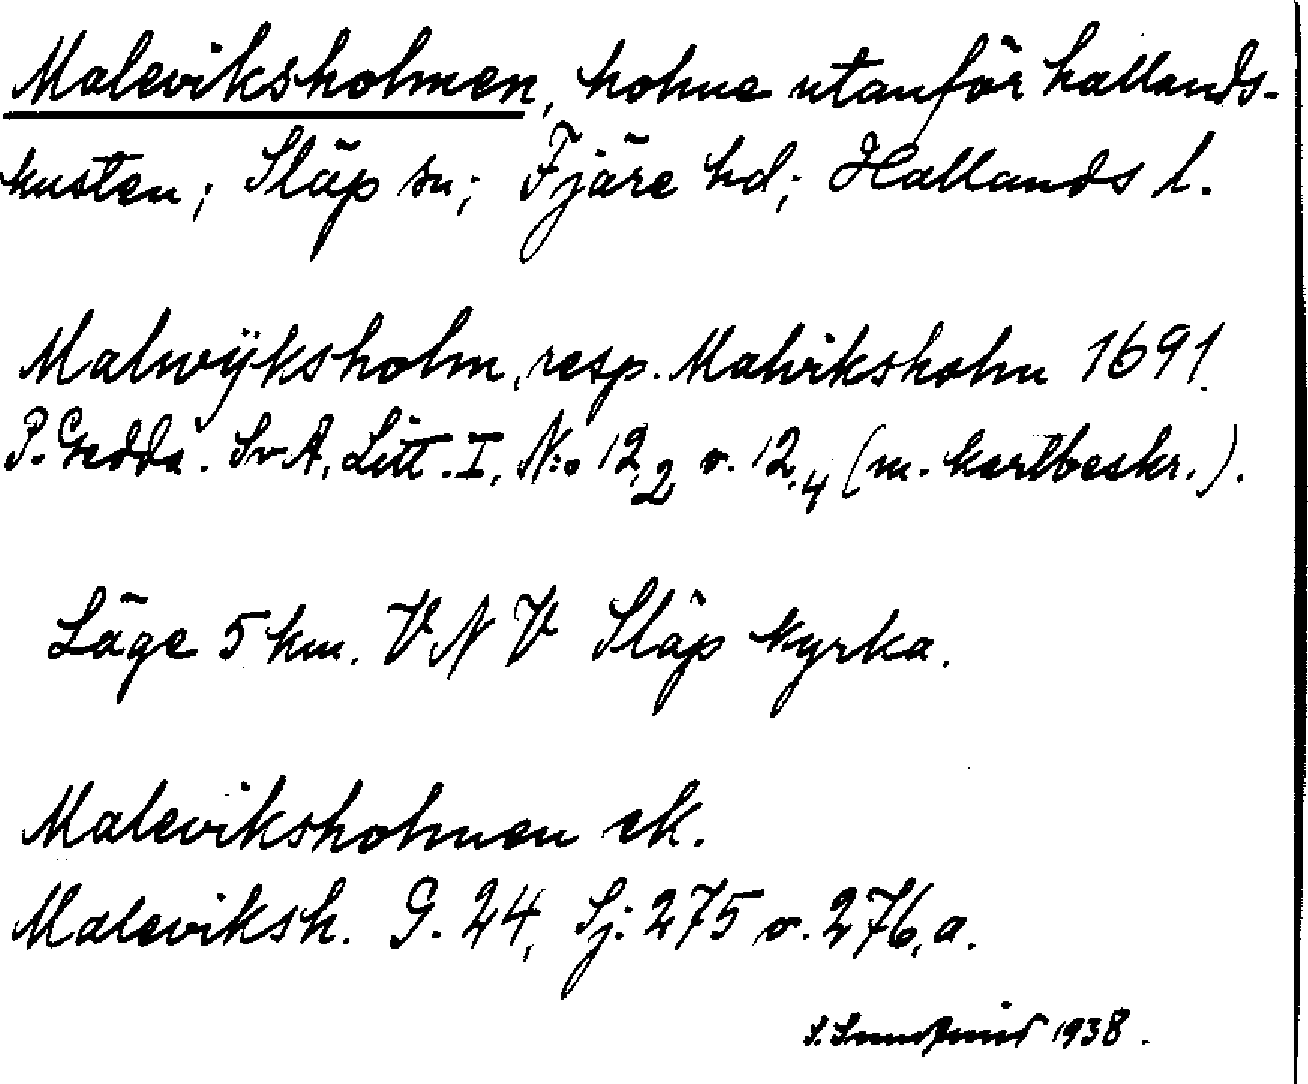 Maleviksholmen, holme utanför hallands-
kusten; Släp sn; Fjäre hd; Hallands l.
Malwÿksholm, resp. Malviksholm 1691.
P. Gedda. Sv A, Litt. I, N:o 12,2 o. 12,4 (m. kartbeskr.).
Läge 5 km. VNV Släp kyrka.
Maleviksholmen ek.
Maleviksh. G. 24, Sj: 275 o. 276, a.
1938.